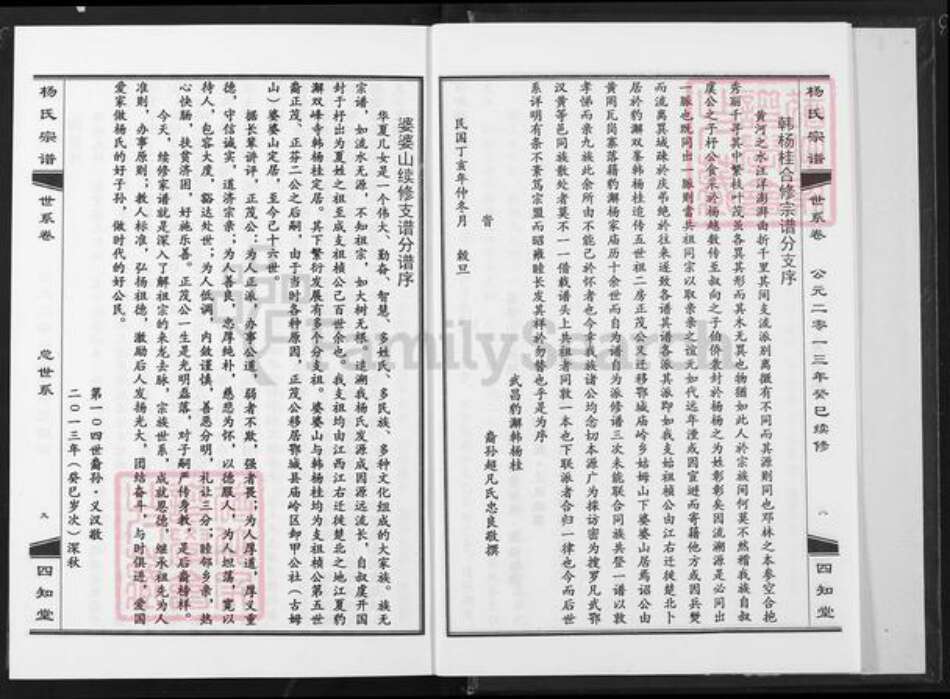 杨氏宗谱 世系卷 公元二零一三年癸巳续修 八 四知堂
韩杨桂合修宗谱分支序
黄河之水汪洋澎湃曲折千里其间支流派别离微有不同而其源则同也邓林之本参空合抱
秀丽千寻其中繁枝叶茂虽各異其形而其木无異也物猶如此人於宗族间何莫不然稽我族自叔
虞公之子杼公食采於杨越数传至叔向之子伯侨袁封於杨杨之为姓彰彰矣因流溯源是必同出
一脉也既同出一脉则當共祖同宗以取亲亲之谊无如代远年湮或因宦遊而寄籍他方或因兵燹
而流离異域疎於庆弔绝於往来遂致各谱其谱各派其派即如我支始祖楨公由江右迁徙楚北卜
居於豹澥双峯韩杨桂追传五世祖二房正茂公又迁移鄂城庙岭乡姑姆山下婆婆山居焉诏公由
黄岡瓦岗寨落籍豹澥杨家庙历十余世而自为谱自为派修谱三次未能联合同族共登一谱以敦
孝悌而亲九族此余所由不能己於怀者也今幸我族诸公均念切本源广为採访密为搜罗凡武鄂
汉黄等邑同族散处者莫不一一借载谱头上共祖者同敦一本也下联派者合归一律也今而后世
系详明有条不紊笃宗盟而昭雍睦长发其祥於勿替也乎是为序
武昌豹澥韩杨桂
裔孙超凡氏忠良敬撰
民国丁亥年仲冬月 榖旦
婆婆山续修支谱分谱序
华夏儿女是一个伟大、勤奋、智慧、多姓氏、多民族、多种文化组成的大家族。族无
宗谱，如流水无源，不知祖宗，如大树无根。追溯我杨氏发源成因源远流长，自叔虞开国
封于杼出为夏姓之祖至成支祖楨公己百世余也。我支祖均由江西江右迁徙楚北之地江夏豹
澥双峰寺韩杨桂定居。其下繁衍发展有多个分支祖。婆婆山与韩杨桂均为支祖楨公第五世
裔正茂、正芬二公之后嗣，由于当时各种原因，正茂公移居鄂城县庙岭区卸甲公社（古姆
山）婆婆山定居，至今己十六世。
据长辈讲评，正茂公：为人正派，办事公道，弱者不欺，强者畏；为人厚道，厚义重
德，守信诚实，道济宗亲；为人善良，忠厚纯朴，慈悲为怀，以德服人，为人坦荡，宽以
待人，包容大度，豁达处世；为人低调，内敛谨慎，善恶分明，礼让三分；睦邻乡亲，热
心快肠，扶贫济困，好施乐善。正茂公一生是光明磊落，对子嗣严传身教，是后裔榜样。
今天，续修家谱就是深入了解祖宗的来龙去脉，宗族世系，成就恩德，继承祖先为人
准则，办事原则；教人标准，弘扬祖德，激励后人发扬光大，团结奋斗，与时俱进，爱国
爱家做杨氏的好子孙，做时代的好公民。
第一〇四世裔孙·义汉敬
二〇一三年（癸巳岁次）深秋
杨氏宗谱 世系卷 总世系 九 四知堂
FamilySearch